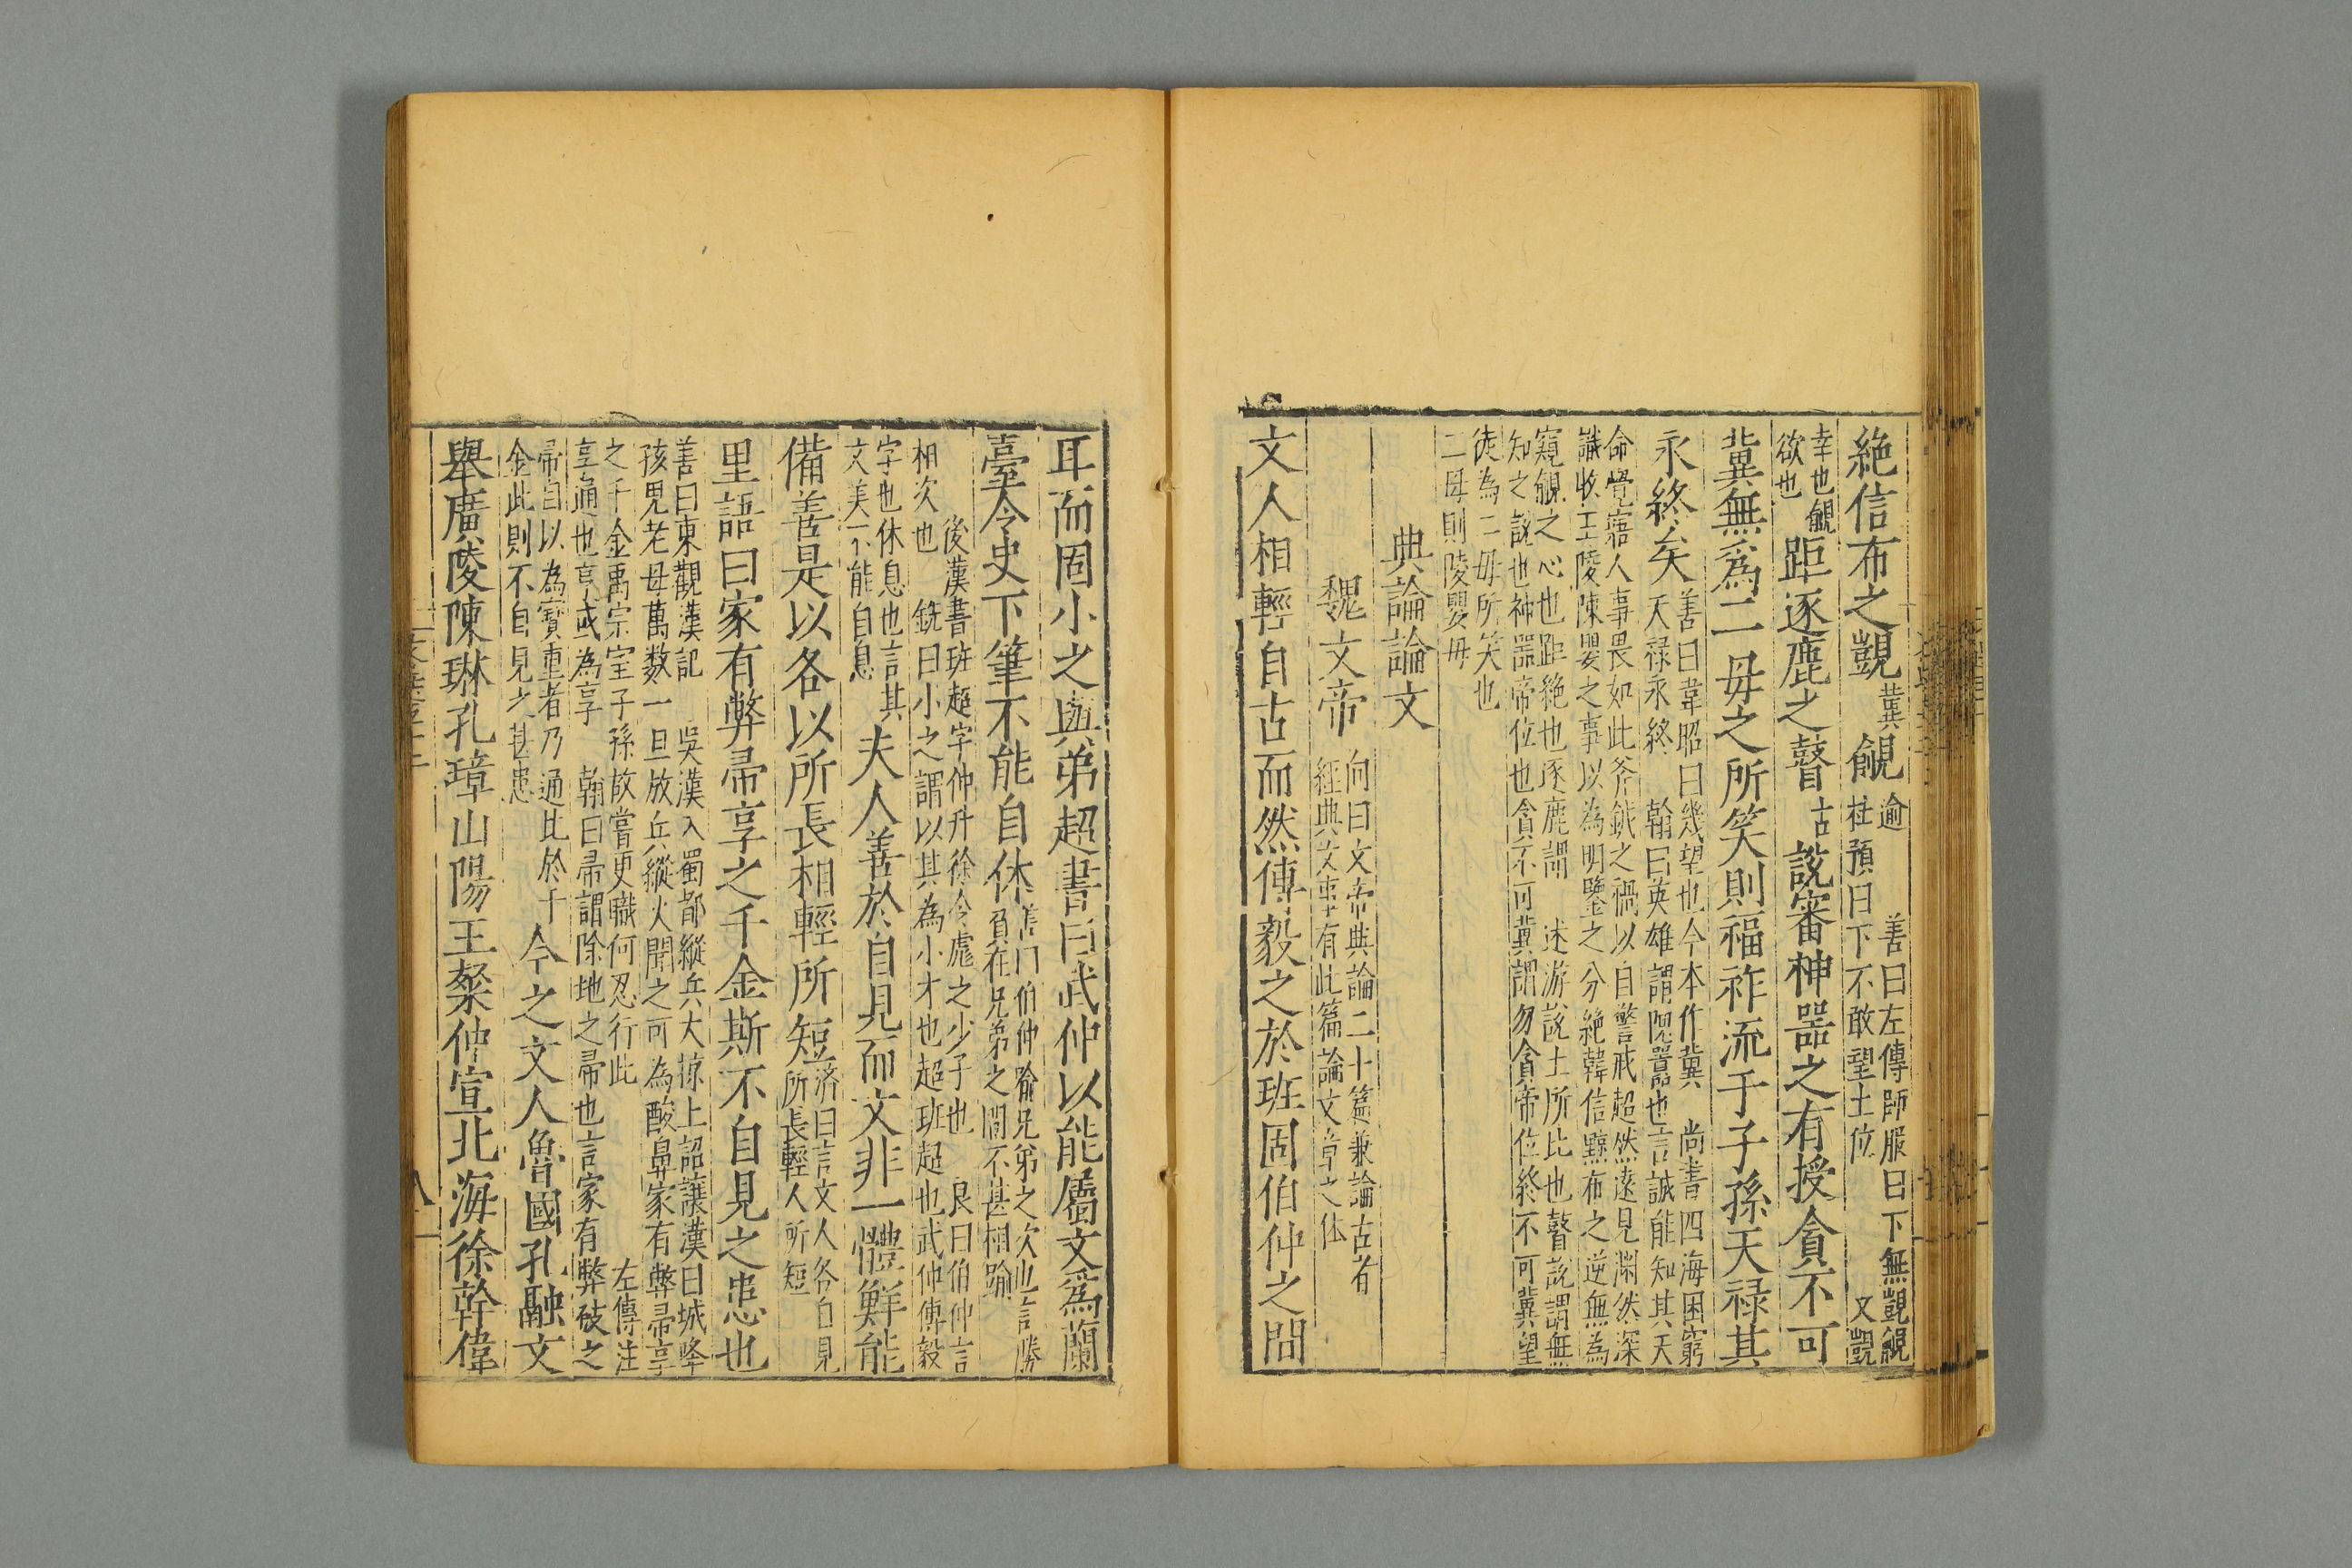 絶信布之覬冀覦逾善曰左傳師服曰下無覬覦
杜預曰下不敢望上位又覬
幸也覦
欲也距逐鹿之瞽古說審神器之有授貪不可
冀無爲二毋之所笑則福祚流于子孫天禄其
永終矣善曰韋昭曰幾望也今本作冀尚書四海困窮
天禄永終翰曰英雄謂隗囂也言誠能知其天
命覺寤人事畏如此斧鉞之禍以自警戒超然遠見淵然深
識收王陵陳嬰之事以為明鑒之分絶韓信黥布之逆無為
窺覦之心也距絶也逐鹿謂述游說士所比也瞽說謂無
知之說也神器帝位也貪不可冀謂勿貪帝位終不可冀望
徒為二毋所笑也
二毋則陵嬰毋
典論論文
魏文帝向曰文帝典論二十篇兼論古者
經典文事有此篇論文章之体
文人相輕自古而然傅毅之於班固伯仲之間
耳而固小之與弟超書曰武仲以能屬文爲蘭
臺令史下筆不能自休善曰伯仲喻兄弟之次也言勝
負在兄弟之間不甚相踰
後漢書班超字仲升徐令彪之少子也良曰伯仲言
相次也銑曰小之謂以其為小才也超班超也武仲傅毅
字也休息也言其
文美不能自息夫人善於自見而文非一體鮮能
備善是以各以所長相輕所短济曰言文人各自見
所長輕人所短
里語曰家有弊帚享之千金斯不自見之患也
善曰東觀漢記吳漢入蜀都縱兵大掠上詔讓漢曰城降
孩児老母萬数一旦放兵縱火聞之可為酸鼻家有弊帚享
之千金禹宗室子孫故嘗更職何忍行此左傳注
享通也亨或為享翰曰帚謂除地之帚也言家有弊破之
帚自以為寳重者乃通比於千
金此則不自見之甚患今之文人魯國孔融文
舉廣陵陳琳孔璋山陽王粲仲宣北海徐幹偉